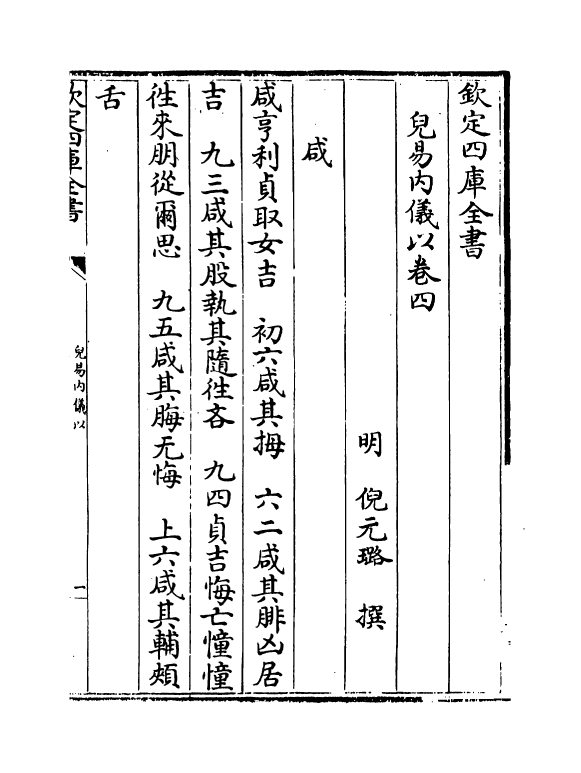 欽定四庫全書
兒易內儀以卷四
明　倪元璐　撰
咸
咸亨利貞取女吉　初六咸其拇　六二咸其腓凶居
吉　九三咸其股執其隨徃吝　九四貞吉悔亡憧憧
徃來朋從爾思　九五咸其脢无悔　上六咸其輔頰
舌
欽定四庫全書
兒易內儀以
一